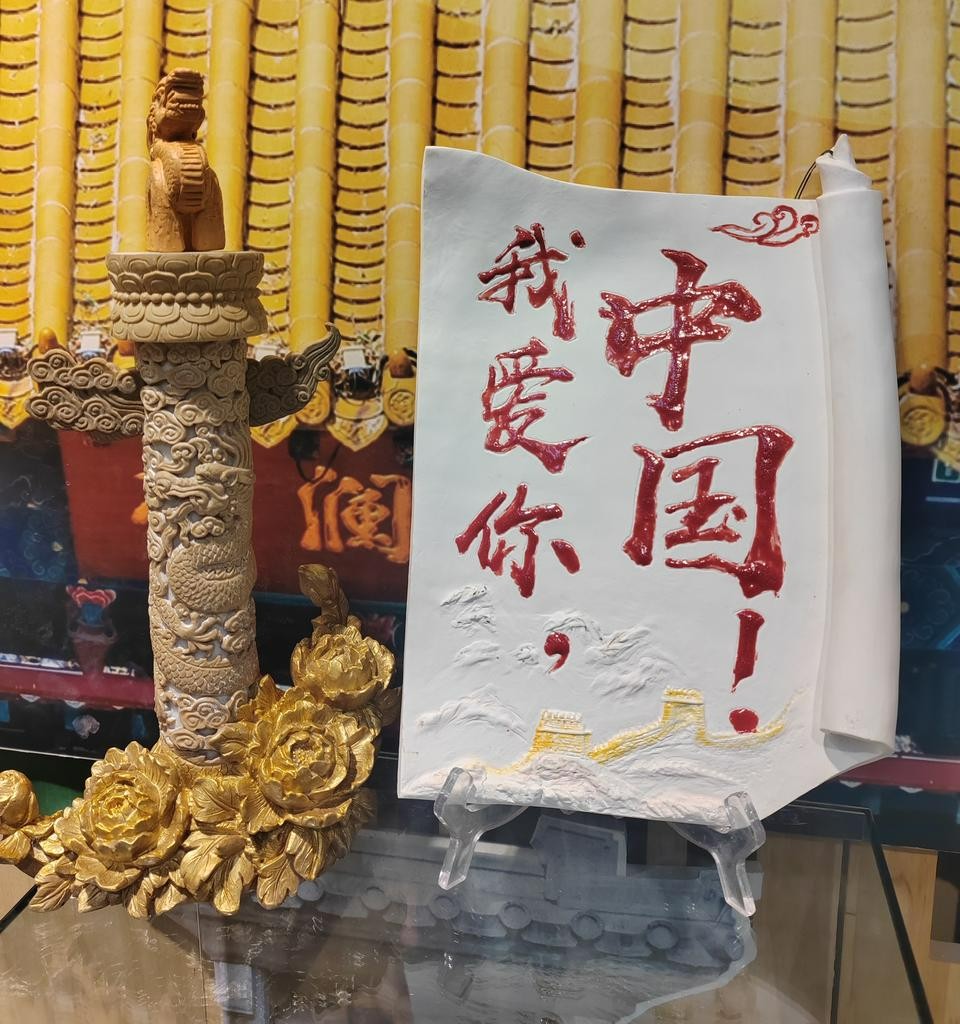 我爱你，
中国！